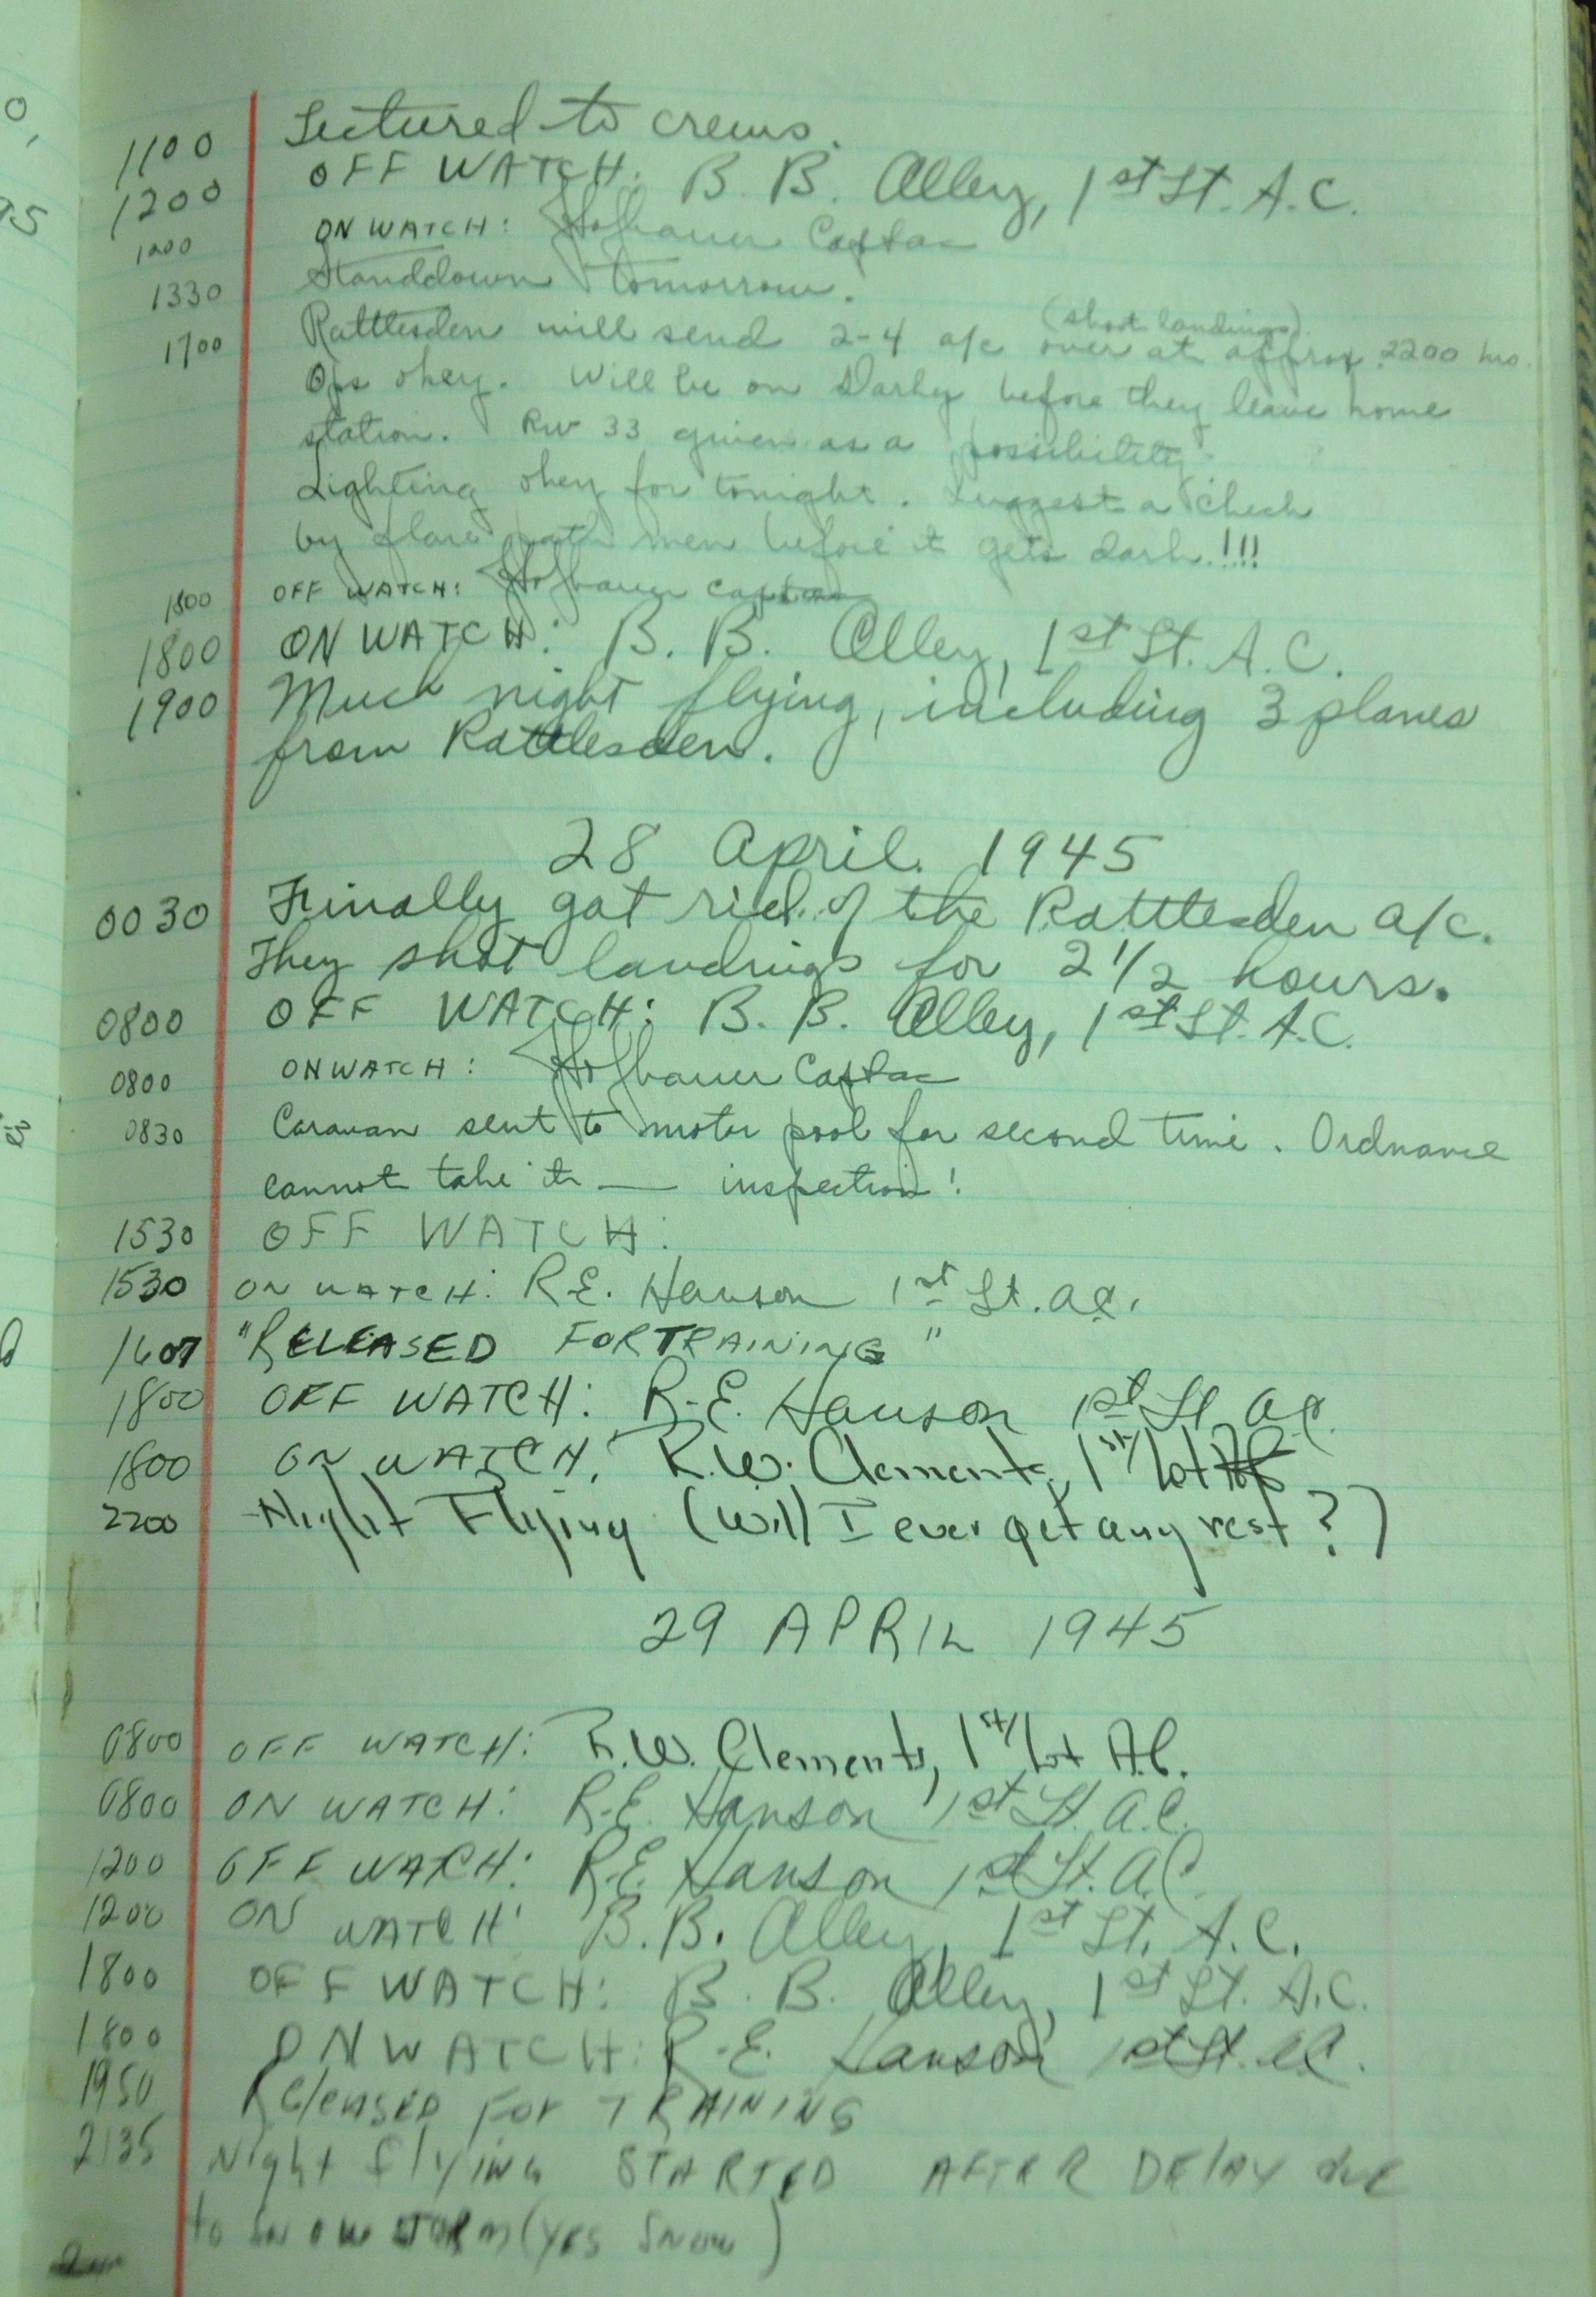 1100 Lectured to crews.
1200 OFF WATCH: B. B. Alley, 1st Lt. A.C.
1200 ON WATCH: Hofbauer Capt ac
1330 Standdown tomorrow.
(shoot landings)
1700 Rattlesden will send 2-4 a/c over at approx. 2200 hrs.
Ops okey. Will be on Darky before they leave home
station. RW 33 given as a possibility.
Lighting okey for tonight. Suggest a check
by flare path men before it gets dark!!!!
1800 OFF WATCH: Hofbauer Capt ac
1800 ON WATCH: B. B. Alley, 1st Lt. A.C.
1900 Much night flying, including 3 planes
from Rattlesden.
28 April 1945
0030 Finally got rid of the Rattlesden a/c.
They shot landings for 2 1/2 hours.
0800 OFF WATCH: B. B. Alley, 1st Lt. A.C.
0800 ON WATCH: Hofbauer Capt ac
0830 Caravan sent to motor pool for second time. Ordnance
cannot take it — inspection!
1530 OFF WATCH:
1530 ON WATCH: R.E. Hanson 1st Lt. a.c.
1607 "RELEASED FOR TRAINING"
1800 OFF WATCH: R.E. Hanson 1st Lt a.c.
1800 ON WATCH: R.W. Clements, 1st/Lot
2200 Night Flying (Will I ever get any rest?)
29 APRIL 1945
0800 OFF WATCH: R.W. Clements, 1st/Lot A.C.
0800 ON WATCH: R.E. Hanson 1st Lt. a.c.
1200 OFF WATCH: R.E. Hanson 1st Lt. a.c.
1200 ON WATCH: B.B. Alley, 1st Lt. A.C.
1800 OFF WATCH: B. B. Alley, 1st Lt. A.C.
1800 ON WATCH: R.E. Hanson 1st Lt. a.c.
1950 Released For TRAINING
2135 Night flying STARTED AFTER DELAY due
to snow storm (yes snow)